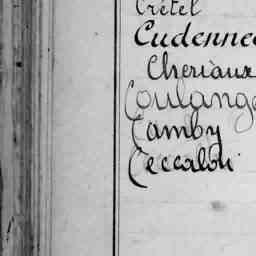 Crétel
Cudennec
Cheriaux
Coulange
Camby
Ceccalou